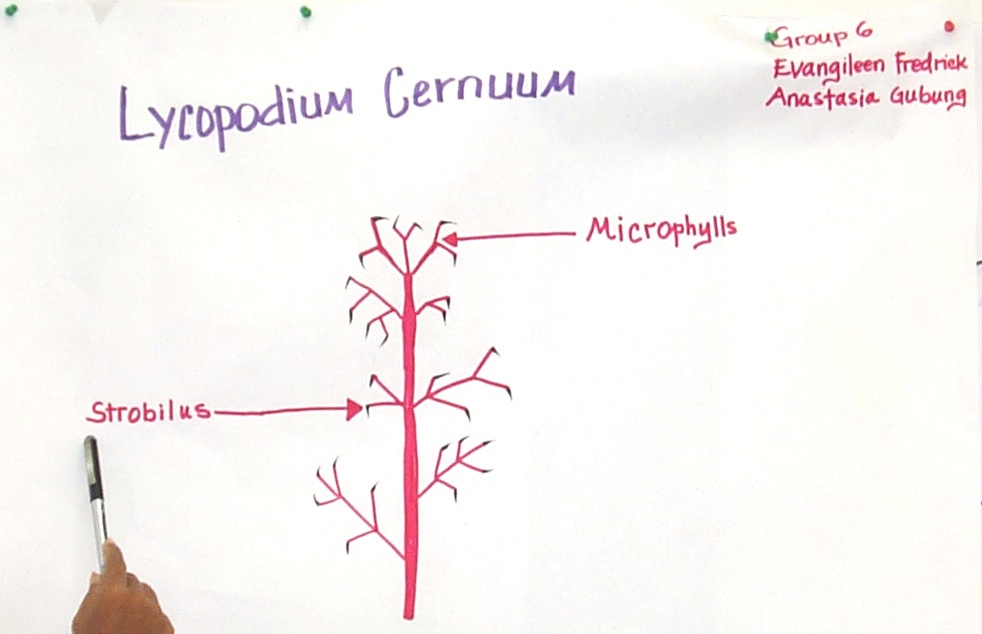 Group 6
Evangileen Fredrick
Anastasia Gubung
Lycopodium Cernuum
Microphylls
Strobilus